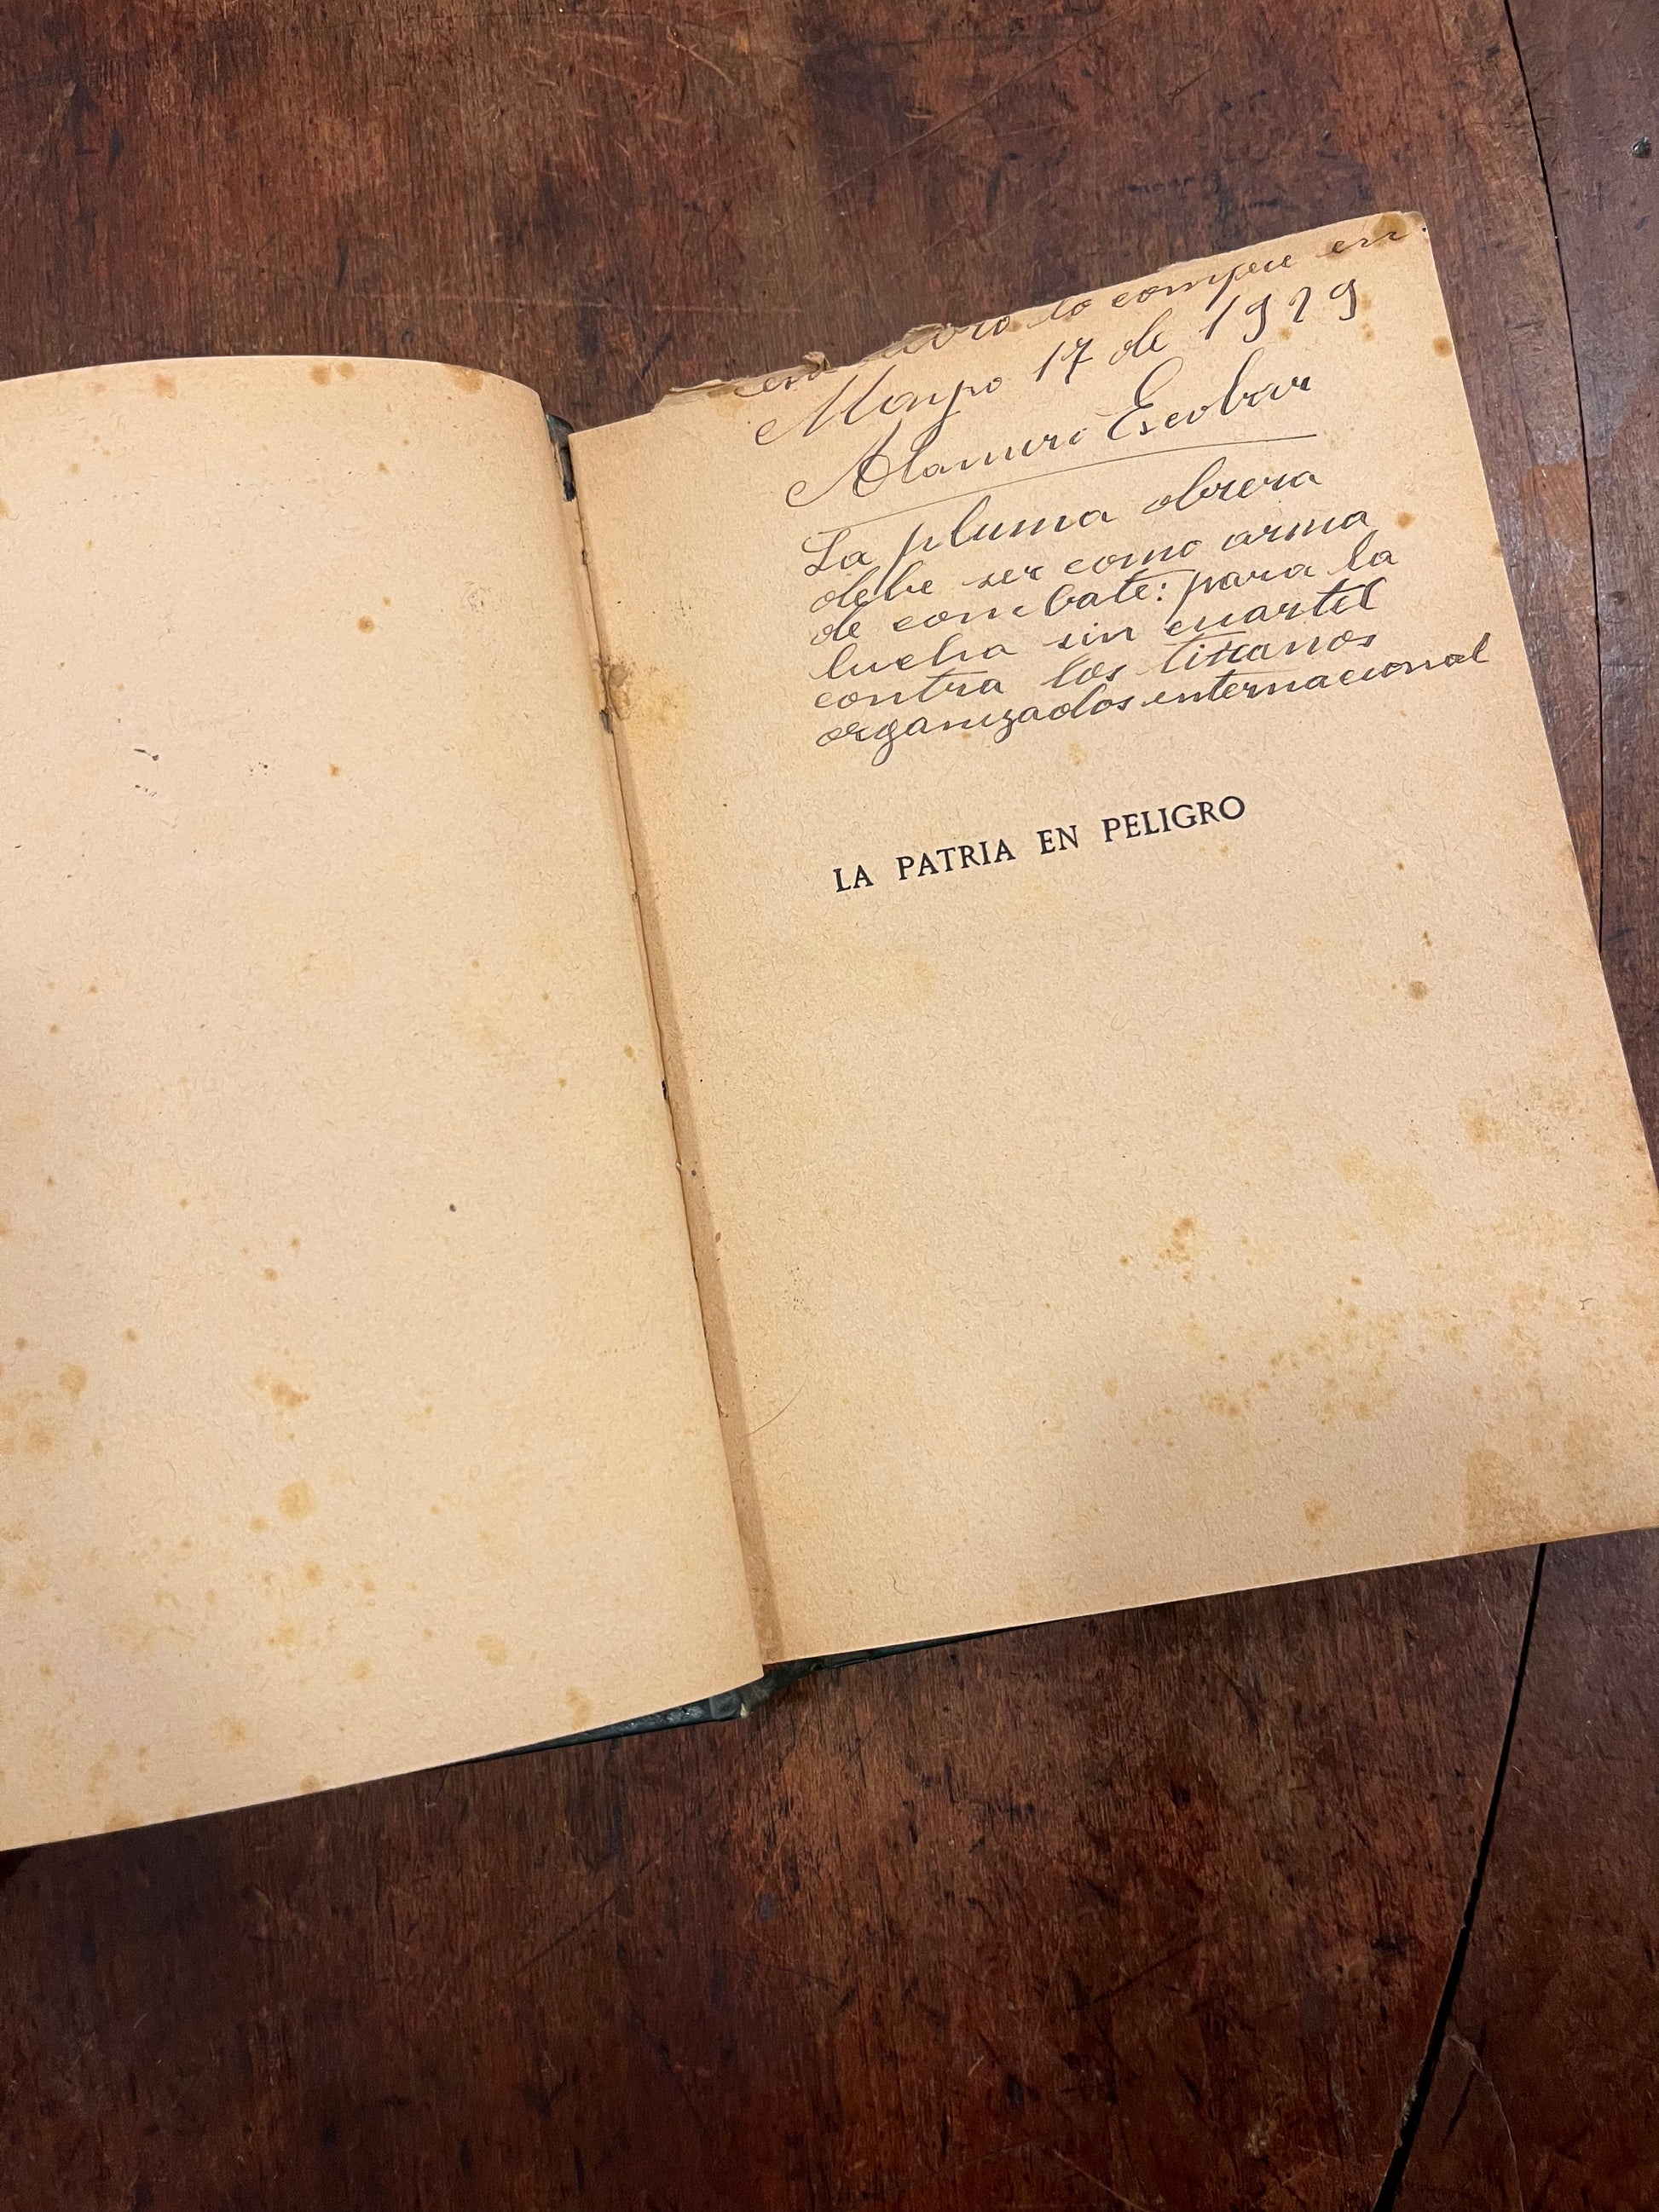 libro lo compre en
Mayo 17 de 1929
Escobar
La pluma obrera
debe ser como arma
de combate: para la
lucha sin cuartel
contra los tiranos
organizados internacional
LA PATRIA EN PELIGRO